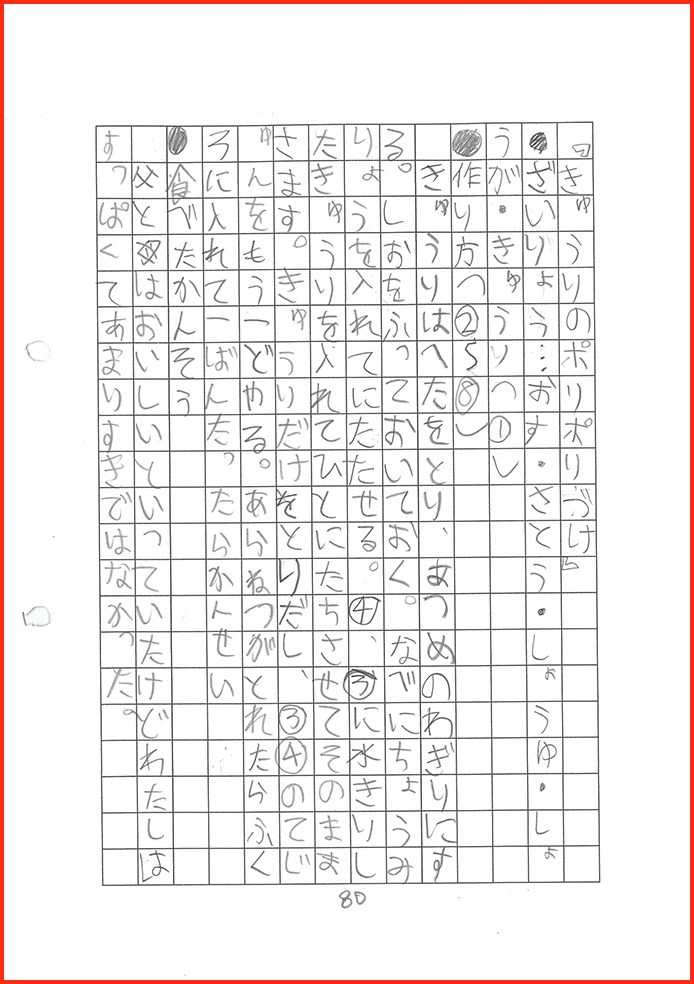 「きゅうりのポリポリづけ」
●ざいりょう…おす・さとう・しょうゆ・しょ
うが・きゅうり(①)
●作り方(②〜⑧)
きゅうりはへたをとり、あつめのわぎりにす
る。しおをふっておいておく。なべにちょうみ
りょうを入れてにたたせる。④、③に水きりし
たきゅうりを入れてひとにたちさせてそのまま
さます。きゅうりだけをとりだし、③④のてじ
ゅんをもう一どやる。あらねつがとれたらふく
ろに入れて一ばんたったらかんせい
●食べたかんそう
父と母はおいしいといっていたけどわたしは
すっぱくてあまりすきではなかった。
80